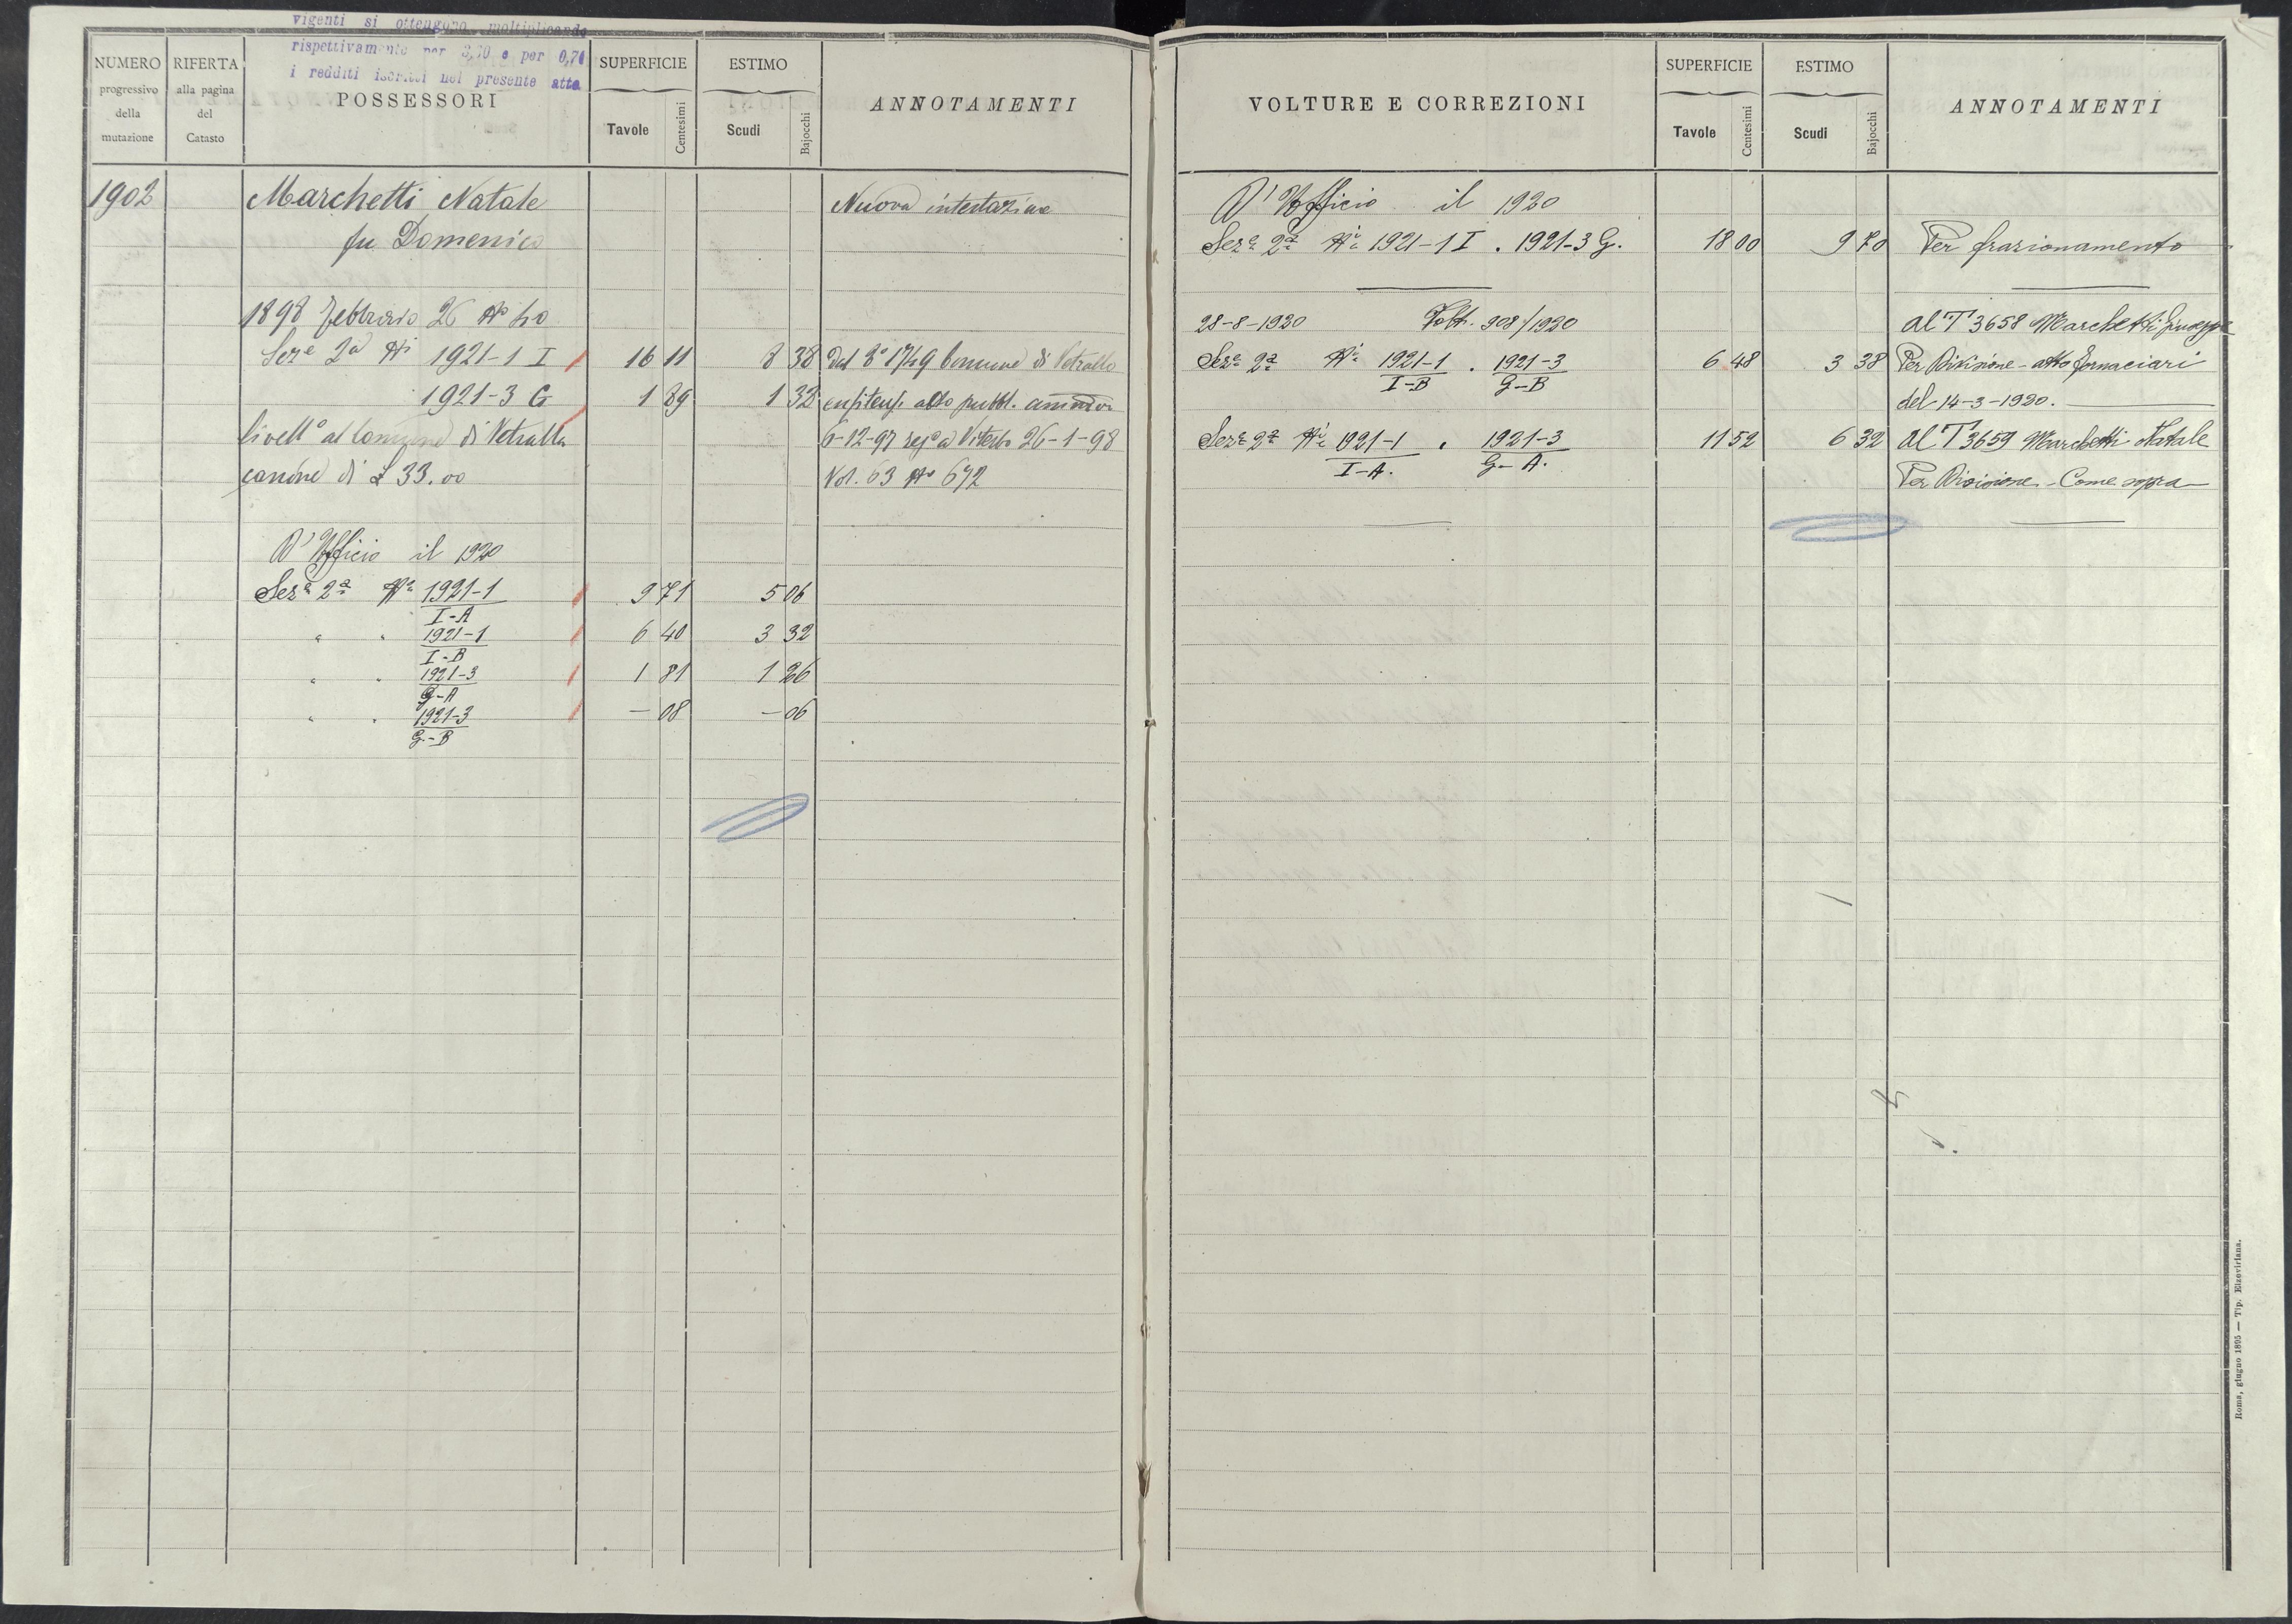 vigenti si ottengono moltiplicando
rispettivamente per 3,70 e per 0,70
i redditi iscritti nel presente atto
NUMERO progressivo della mutazione
RIFERTA alla pagina del Catasto
POSSESSORI
SUPERFICIE
Tavole
Centesimi
ESTIMO
Scudi
Bajocchi
ANNOTAMENTI
1902
Marchetti Natale
fu Domenico
Nuova intestazione
1898 Febbraio 26 No 40
Seze 2a Ni 1921-1 I 16 11 8 38 Dal 1749 Comune di Vetralla
1921-3 G 1 89 1 32 enfiteusi atto pubbl.
livello al Comune di Vetralla 6-12-97 rego a Viterbo 26-1-98
canone di £ 33.00 Vol. 63 No 672
D'Ufficio il 1920
Seze 2a Ni 1921-1 / I-A 9 71 5 06
" " 1921-1 / I-B 6 40 3 32
" " 1921-3 / G-A 1 81 1 26
" " 1921-3 / G-B — 08 — 06
VOLTURE E CORREZIONI
SUPERFICIE
Tavole
Centesimi
ESTIMO
Scudi
Bajocchi
ANNOTAMENTI
D'Ufficio il 1920
Seze 2a Ni 1921-1 I . 1921-3 G. 18 00 9 70 Per frazionamento
28-8-1920 908/1920 Al T 3658 Marchetti Giuseppe
Seze 2a Ni 1921-1 / I-B . 1921-3 / G-B 6 48 3 38 Per Divisione - atto Fornaciari
del 14-3-1920.
Seze 2a Ni 1921-1 / I-A. . 1921-3 / G-A. 11 52 6 32 Al T 3659 Marchetti Natale
Per Divisione - Come sopra
Roma, giugno 1895 — Tip. Elzeviriana.